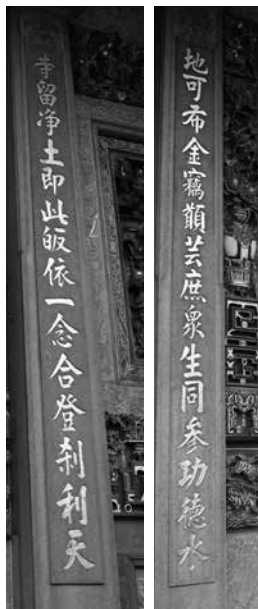 地可布金竊願芸庶眾生同參功德水
寺留净土即此皈依一念合登刹利天